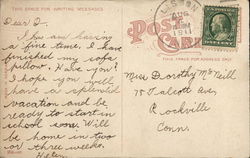 THIS SPACE FOR WRITING MESSAGES
POST
CARD
THIS SPACE FOR ADDRESS ONLY
AUG
1911
Dear D.
I am having
a fine time. I have
finished my sofa
pillow. Have you?
I hope you will
have a splendid
vacation and be
ready to start in
school soon. Will
be home in two
or three weeks.
Helen
Miss Dorothy McNeill
75 Talcott Ave.
Rockville
Conn.